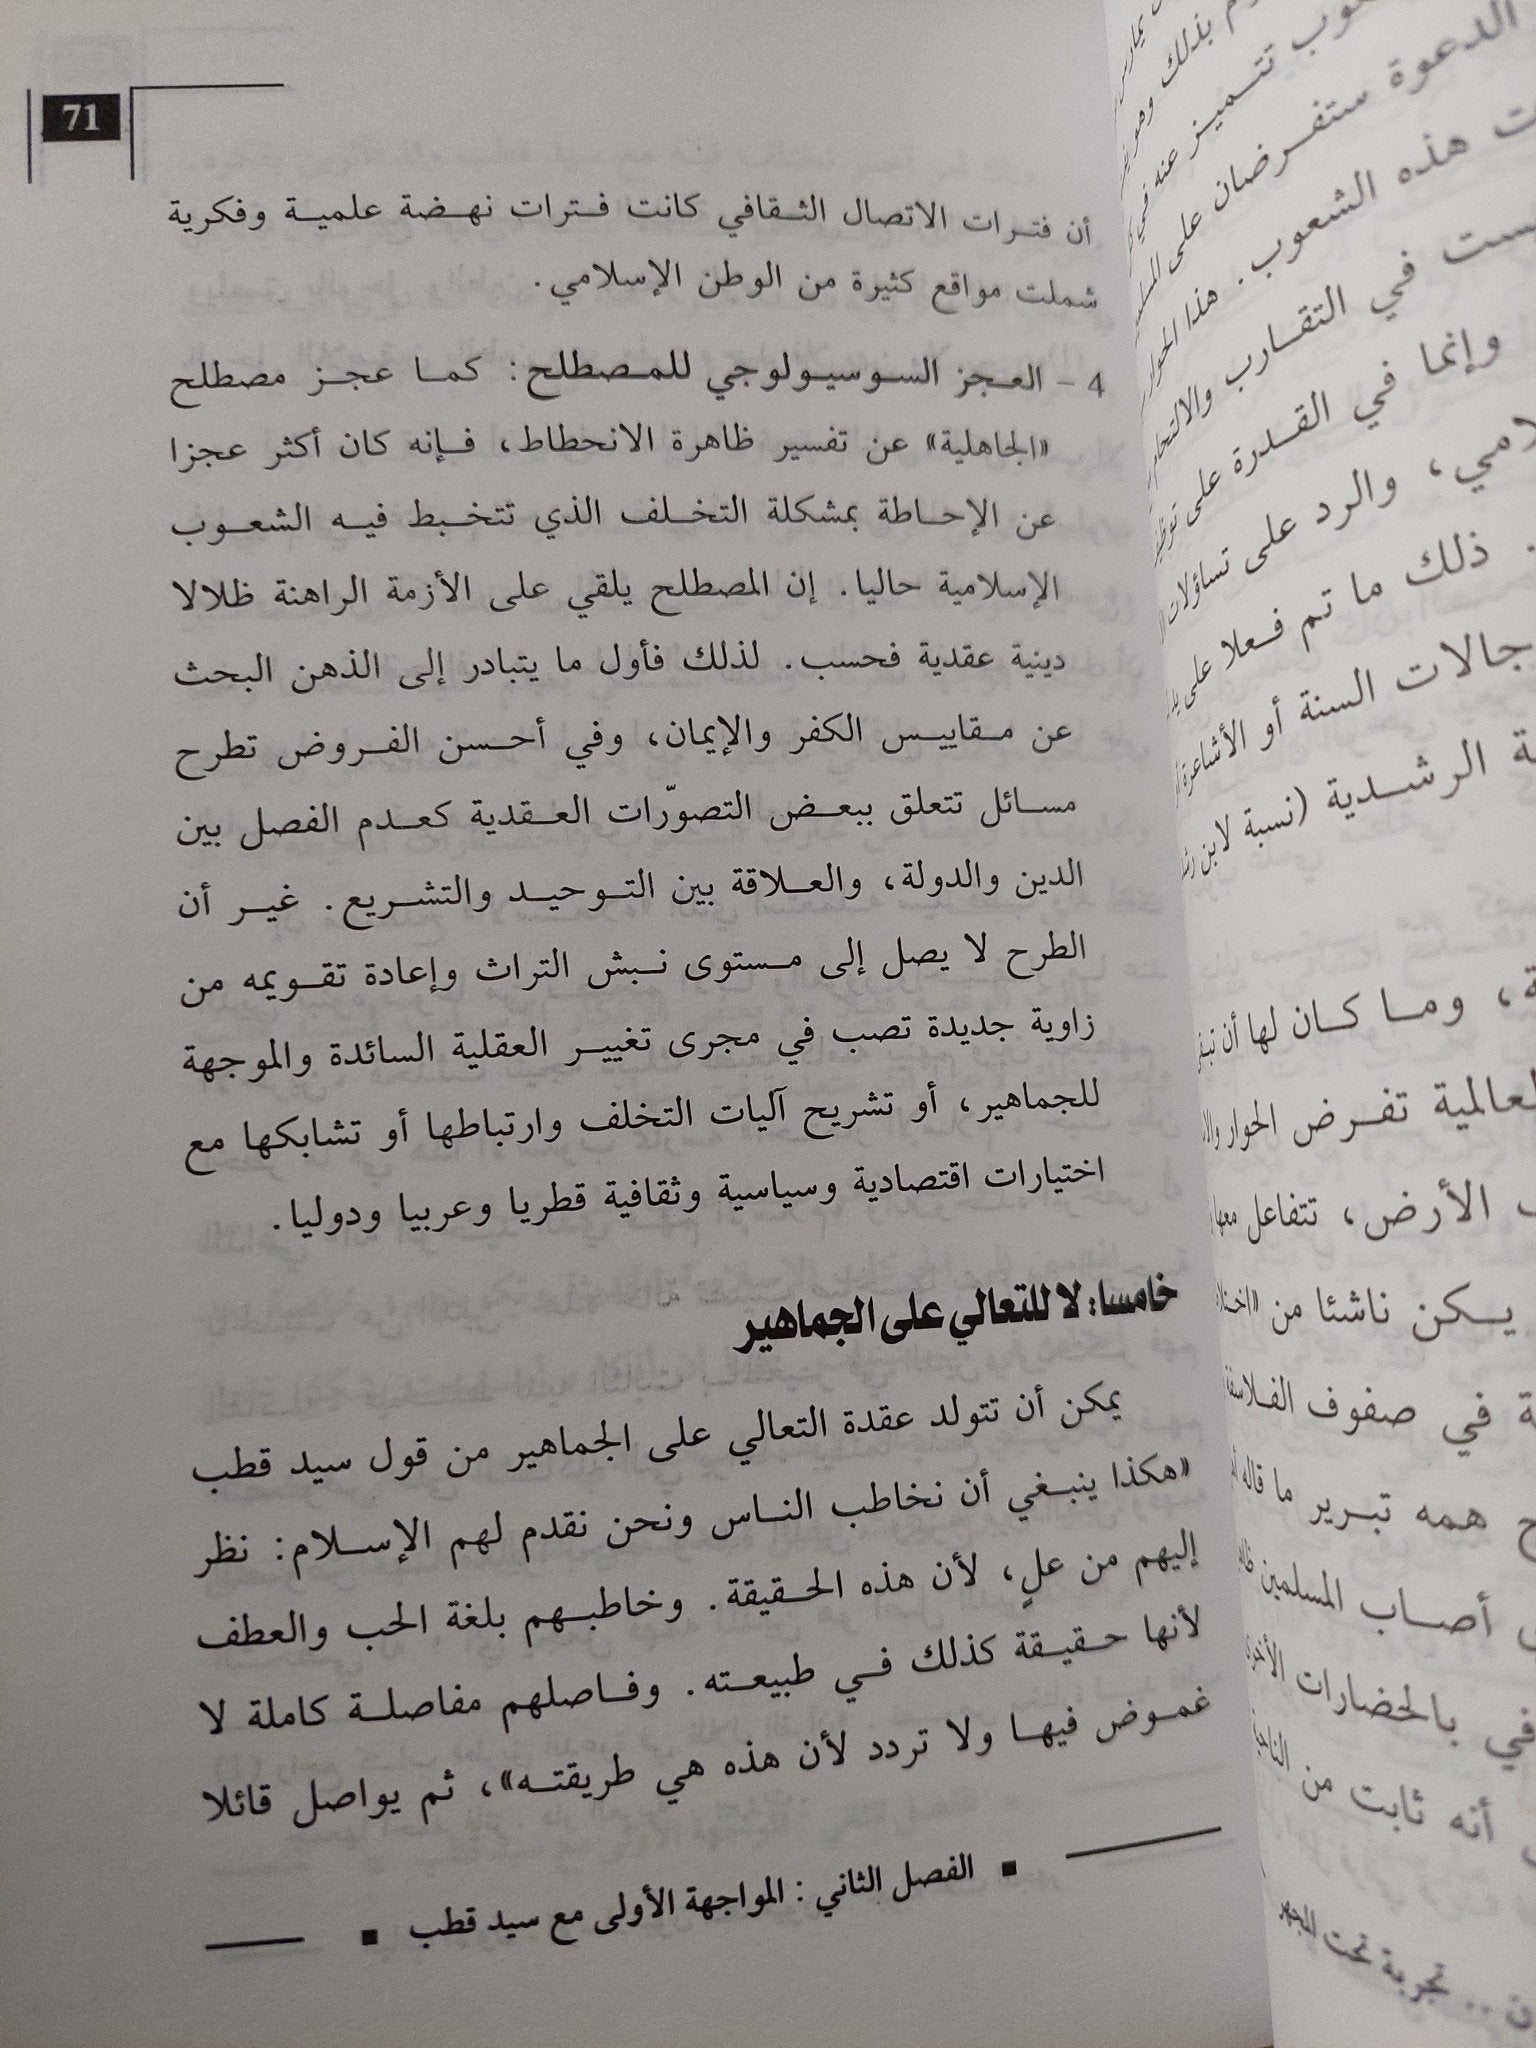 71
أن فترات الاتصال الثقافي كانت فترات نهضة علمية وفكرية
شملت مواقع كثيرة من الوطن الإسلامي.
4 - العجز السوسيولوجي للمصطلح: كما عجز مصطلح
«الجاهلية» عن تفسير ظاهرة الانحطاط، فإنه كان أكثر عجزا
عن الإحاطة بمشكلة التخلف الذي تتخبط فيه الشعوب
الإسلامية حاليا. إن المصطلح يلقي على الأزمة الراهنة ظلالا
دينية عقدية فحسب. لذلك فأول ما يتبادر إلى الذهن البحث
عن مقاييس الكفر والإيمان، وفي أحسن الفروض تطرح
مسائل تتعلق ببعض التصوّرات العقدية كعدم الفصل بين
الدين والدولة، والعلاقة بين التوحيد والتشريع. غير أن
الطرح لا يصل إلى مستوى نبش التراث وإعادة تقويمه من
زاوية جديدة تصب في مجرى تغيير العقلية السائدة والموجهة
للجماهير، أو تشريح آليات التخلف وارتباطها أو تشابكها مع
اختيارات اقتصادية وسياسية وثقافية قطريا وعربيا ودوليا.
خامسا: لا للتعالي على الجماهير
يمكن أن تتولد عقدة التعالي على الجماهير من قول سيد قطب
«هكذا ينبغي أن نخاطب الناس ونحن نقدم لهم الإسلام: نظر
إليهم من علٍ، لأن هذه الحقيقة. وخاطبهم بلغة الحب والعطف
لأنها حقيقة كذلك في طبيعته. وفاصلهم مفاصلة كاملة لا
غموض فيها ولا تردد لأن هذه هي طريقته»، ثم يواصل قائلا
■ الفصل الثاني : المواجهة الأولى مع سيد قطب ■
بذلك
تتميز عنه في
الدعوة ستفرضان على
هذه الشعوب. هذا الحوار
في التقارب والالتحام
وإنما في القدرة على
والرد على تساؤلات
ذلك ما تم فعلا على
السنة أو الأشاعرة
الرشدية (نسبة لابن
وما كان لها أن
تفرض الحوار
الأرض، تتفاعل معها
يكن ناشئا من
في صفوف الفلاسفة
همه تبرير ما قاله
أصاب المسلمين
بالحضارات
أنه ثابت من
تجربة تحت المجهر